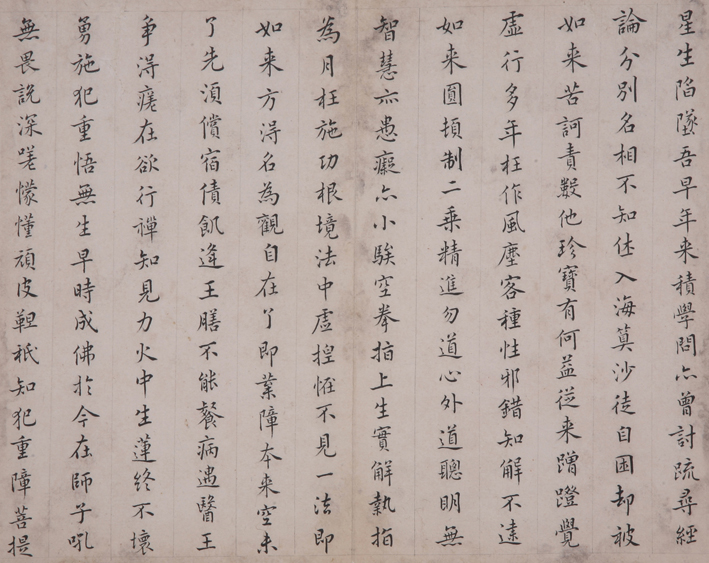 星生陷墜吾早年来積學問亦曾討疏尋經
論分別名相不知休入海筭沙徒自困却被
如来苦訶責數他珍寶有何益従来蹭蹬覺
虚行多年枉作風塵客種性邪錯知解不達
如来圓頓制二乗精進勿道心外道聰明無
智慧亦愚癡亦小騃空拳指上生實解執指
為月枉施功根境法中虚揑恠不見一法即
如来方淂名為觀自在了即業障夲来空未
了先湏償宿債飢逢王膳不能餐病遇醫王
争淂瘥在欲行禅知見力火中生蓮終不壞
勇施犯重悟無生早時成佛扵今在師子吼
無畏説深嗟懞懂頑皮靼祇知犯重障菩提